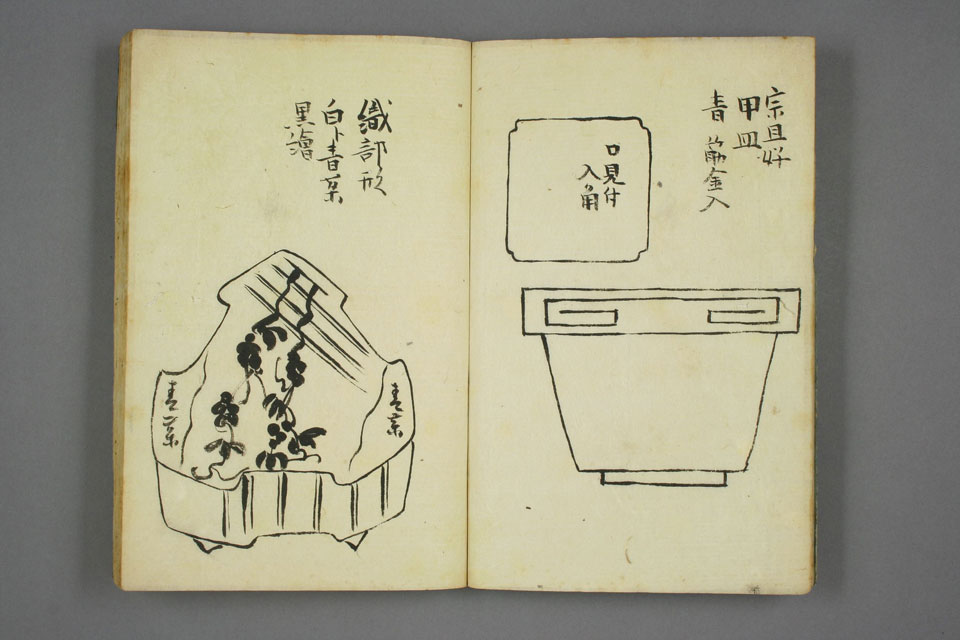 宗旦好
甲皿
青 筋金入
口見付
入角
織部形
白ト青薬
黒繪
青薬
青薬